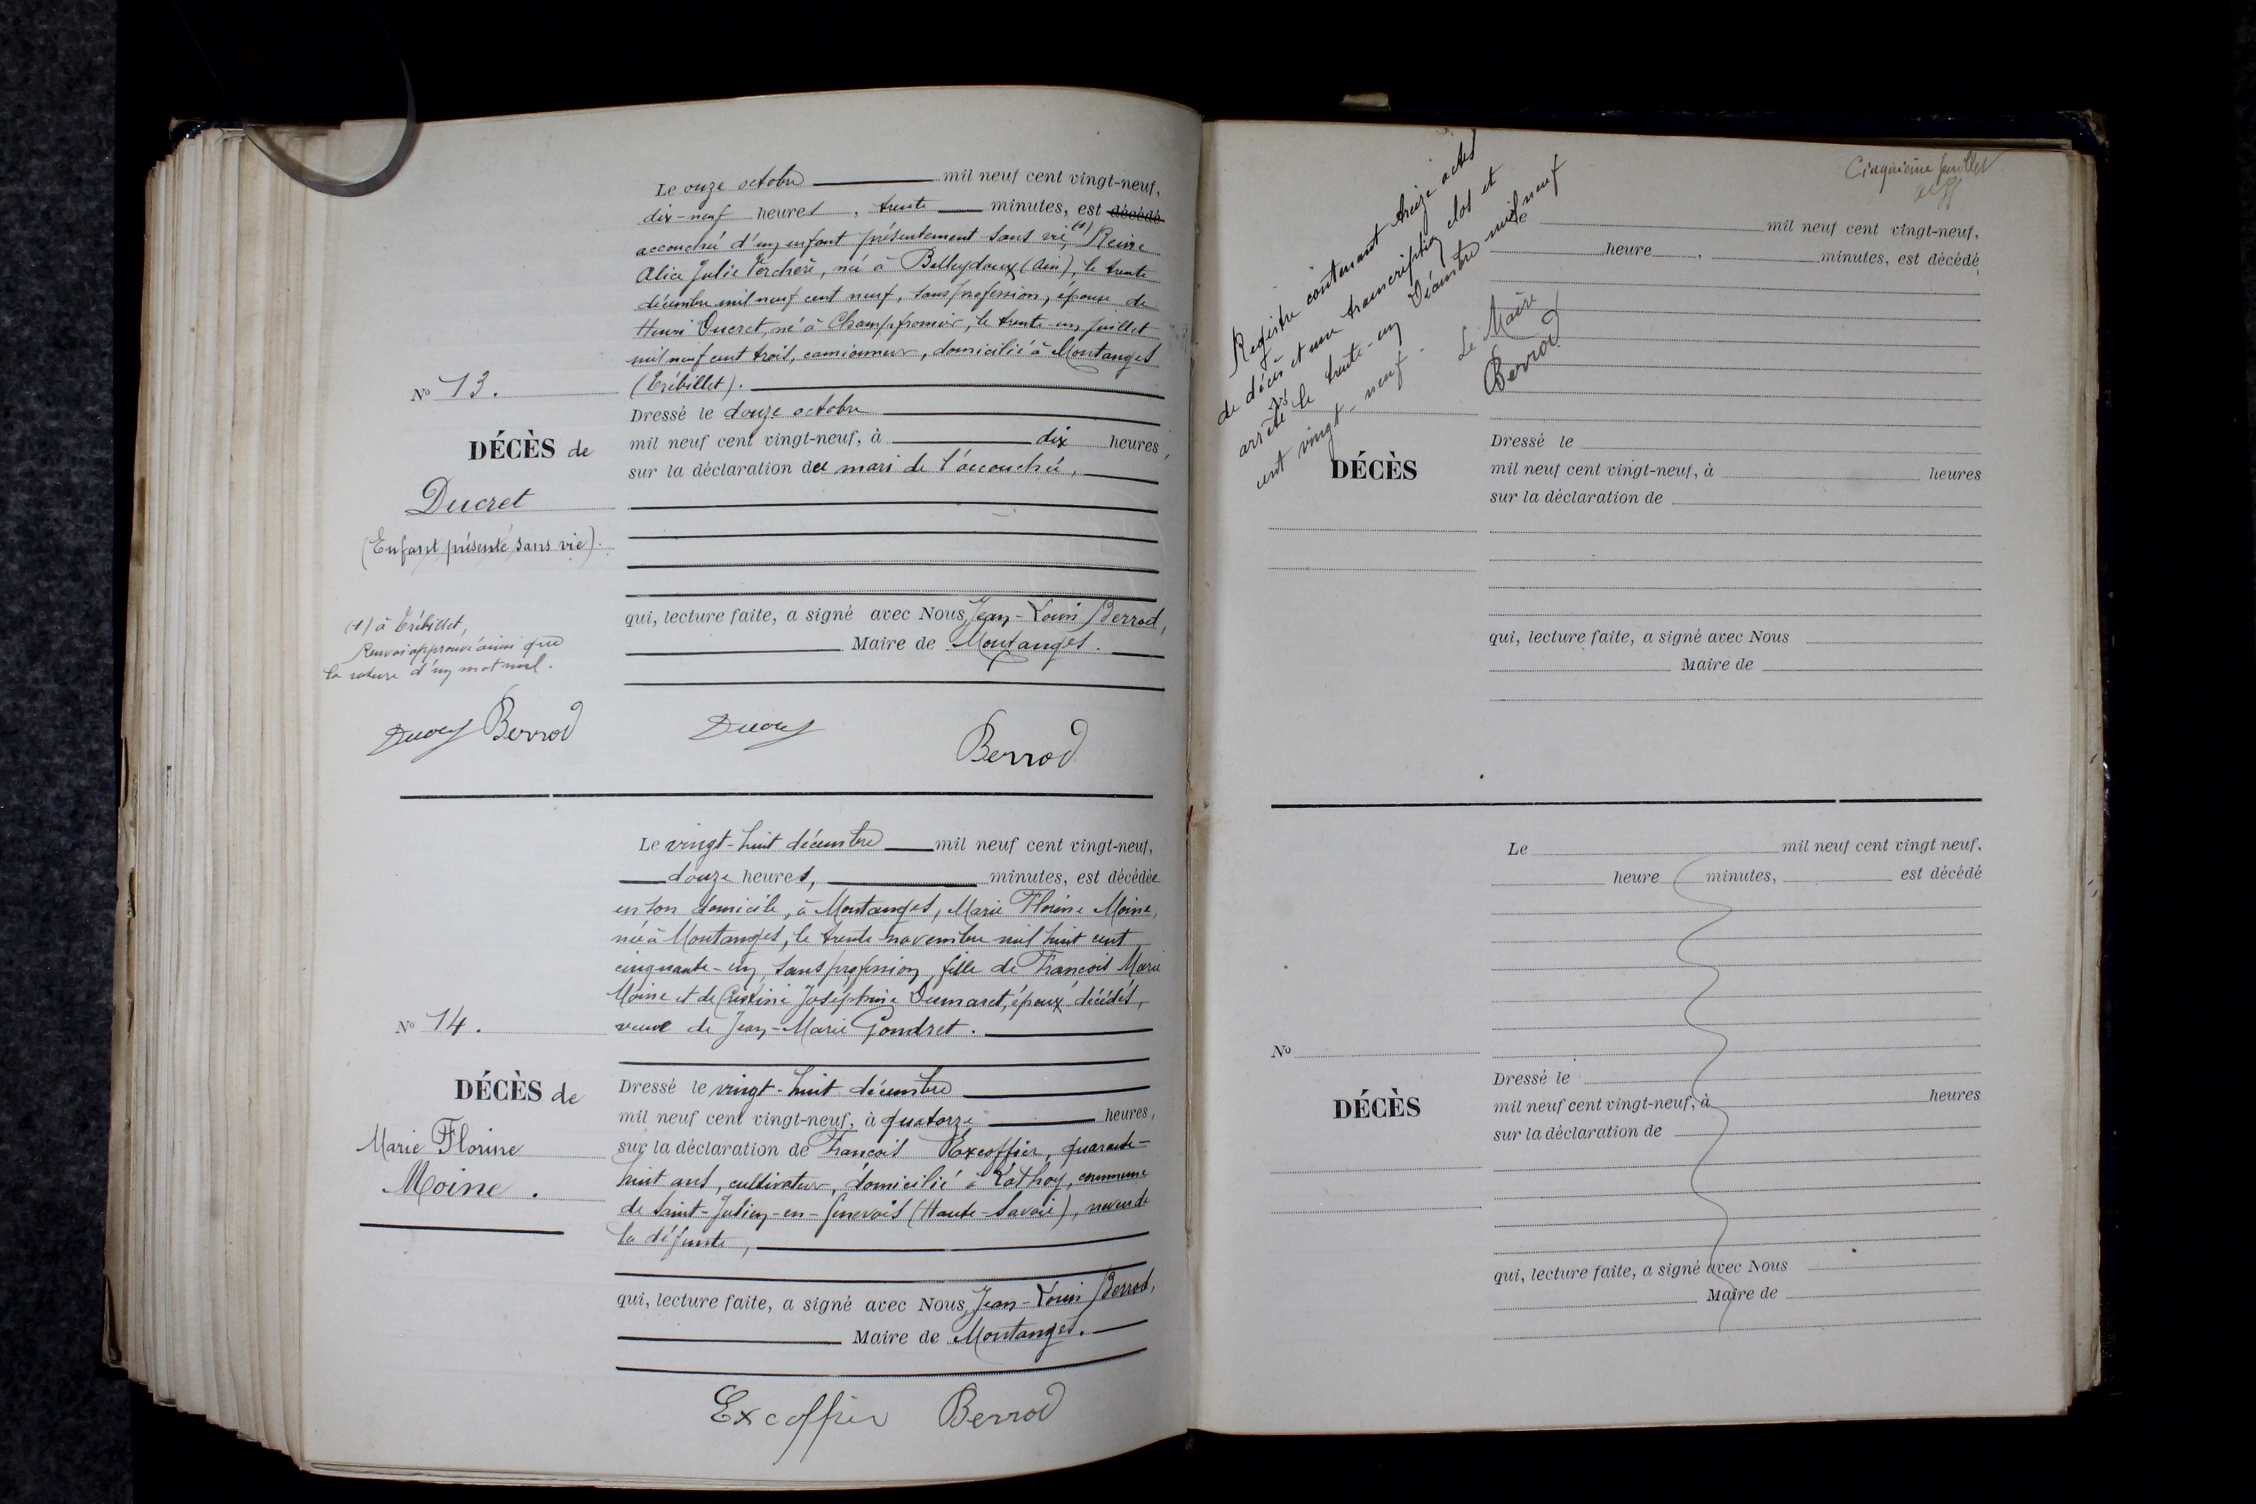 Le onze octobre mil neuf cent vingt-neuf,
dix-neuf heures, trente minutes, est décédé
accouchée d'un enfant présentement sans vie, (1) Reine
Alice Julie Verchère, née à Belleydoux (Ain), le trente
décembre mil neuf cent neuf, sans profession, épouse de
Henri Ducret, né à Champfromier, le trente-un juillet
mil neuf cent trois, camionneur, domicilié à Montanges
(Trébillet).
No 13.
Dressé le douze octobre
mil neuf cent vingt-neuf, à dix heures,
DÉCÈS de
sur la déclaration du mari de l'accouchée,
Ducret
(Enfant présenté sans vie).
qui, lecture faite, a signé avec Nous, Jean-Louis Berrod,
Maire de Montanges.
(1) à Trébillet,
Renvoi approuvé ainsi que
la rature d'un mot nul.
Berrod
Berrod
Le vingt-huit décembre mil neuf cent vingt-neuf,
douze heures, minutes, est décédée
en son domicile, à Montanges, Marie Florine Moine,
née à Montanges, le trente novembre mil huit cent
cinquante-un, sans profession, fille de François Marie
Moine et de Joséphine Dumaret, époux décédés,
No 14.
veuve de Jean-Marie Gondret.
DÉCÈS de
Dressé le vingt-huit décembre
mil neuf cent vingt-neuf, à quatorze heures,
Marie Florine
sur la déclaration de François Excoffier, quarante-
Moine.
huit ans, cultivateur, domicilié à Lathoy, commune
de Saint-Julien-en-Genevois (Haute-Savoie), neveu de
la défunte,
qui, lecture faite, a signé avec Nous, Jean-Louis Berrod,
Maire de Montanges.
Excoffier Berrod
Cinquième feuillet
Registre contenant treize actes
de décès et une transcription clos et
arrêté le trente-un Décembre mil neuf
cent vingt-neuf.
Le Maire
Berrod
Le mil neuf cent vingt-neuf,
heure, minutes, est décédé
No
Dressé le
DÉCÈS
mil neuf cent vingt-neuf, à heures
sur la déclaration de
qui, lecture faite, a signé avec Nous
Maire de
Le mil neuf cent vingt neuf,
heure minutes, est décédé
No
Dressé le
DÉCÈS
mil neuf cent vingt-neuf, à heures
sur la déclaration de
qui, lecture faite, a signé avec Nous
Maire de